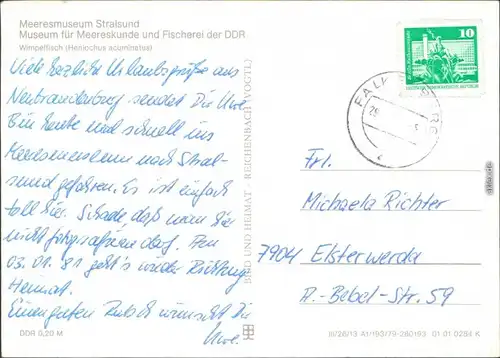 Meeresmuseum Stralsund
Museum für Meereskunde und Fischerei der DDR
Wimpelfisch (Heniochus acuminatus)
Viele herzliche Urlaubsgrüße aus
Neubrandenburg sendet Dir Uwe.
Bin heute mal schnell ins
Meeresmuseum nach Stral-
sund gefahren. Es ist einfach
toll hier. Schade daß man hier
nicht fotografieren darf. Am
03.01.81 geht's wieder Richtung
Heimat.
Einen guten Rutsch wünscht Dir
Uwe.
DDR 0,20 M
BILD UND HEIMAT · REICHENBACH (VOGTL)
10
FALKENBERG
Frl.
Michaela Richter
7904 Elsterwerda
A.-Bebel-Str. 59
III/26/13 A1/193/79-280193 01 01 0284 K